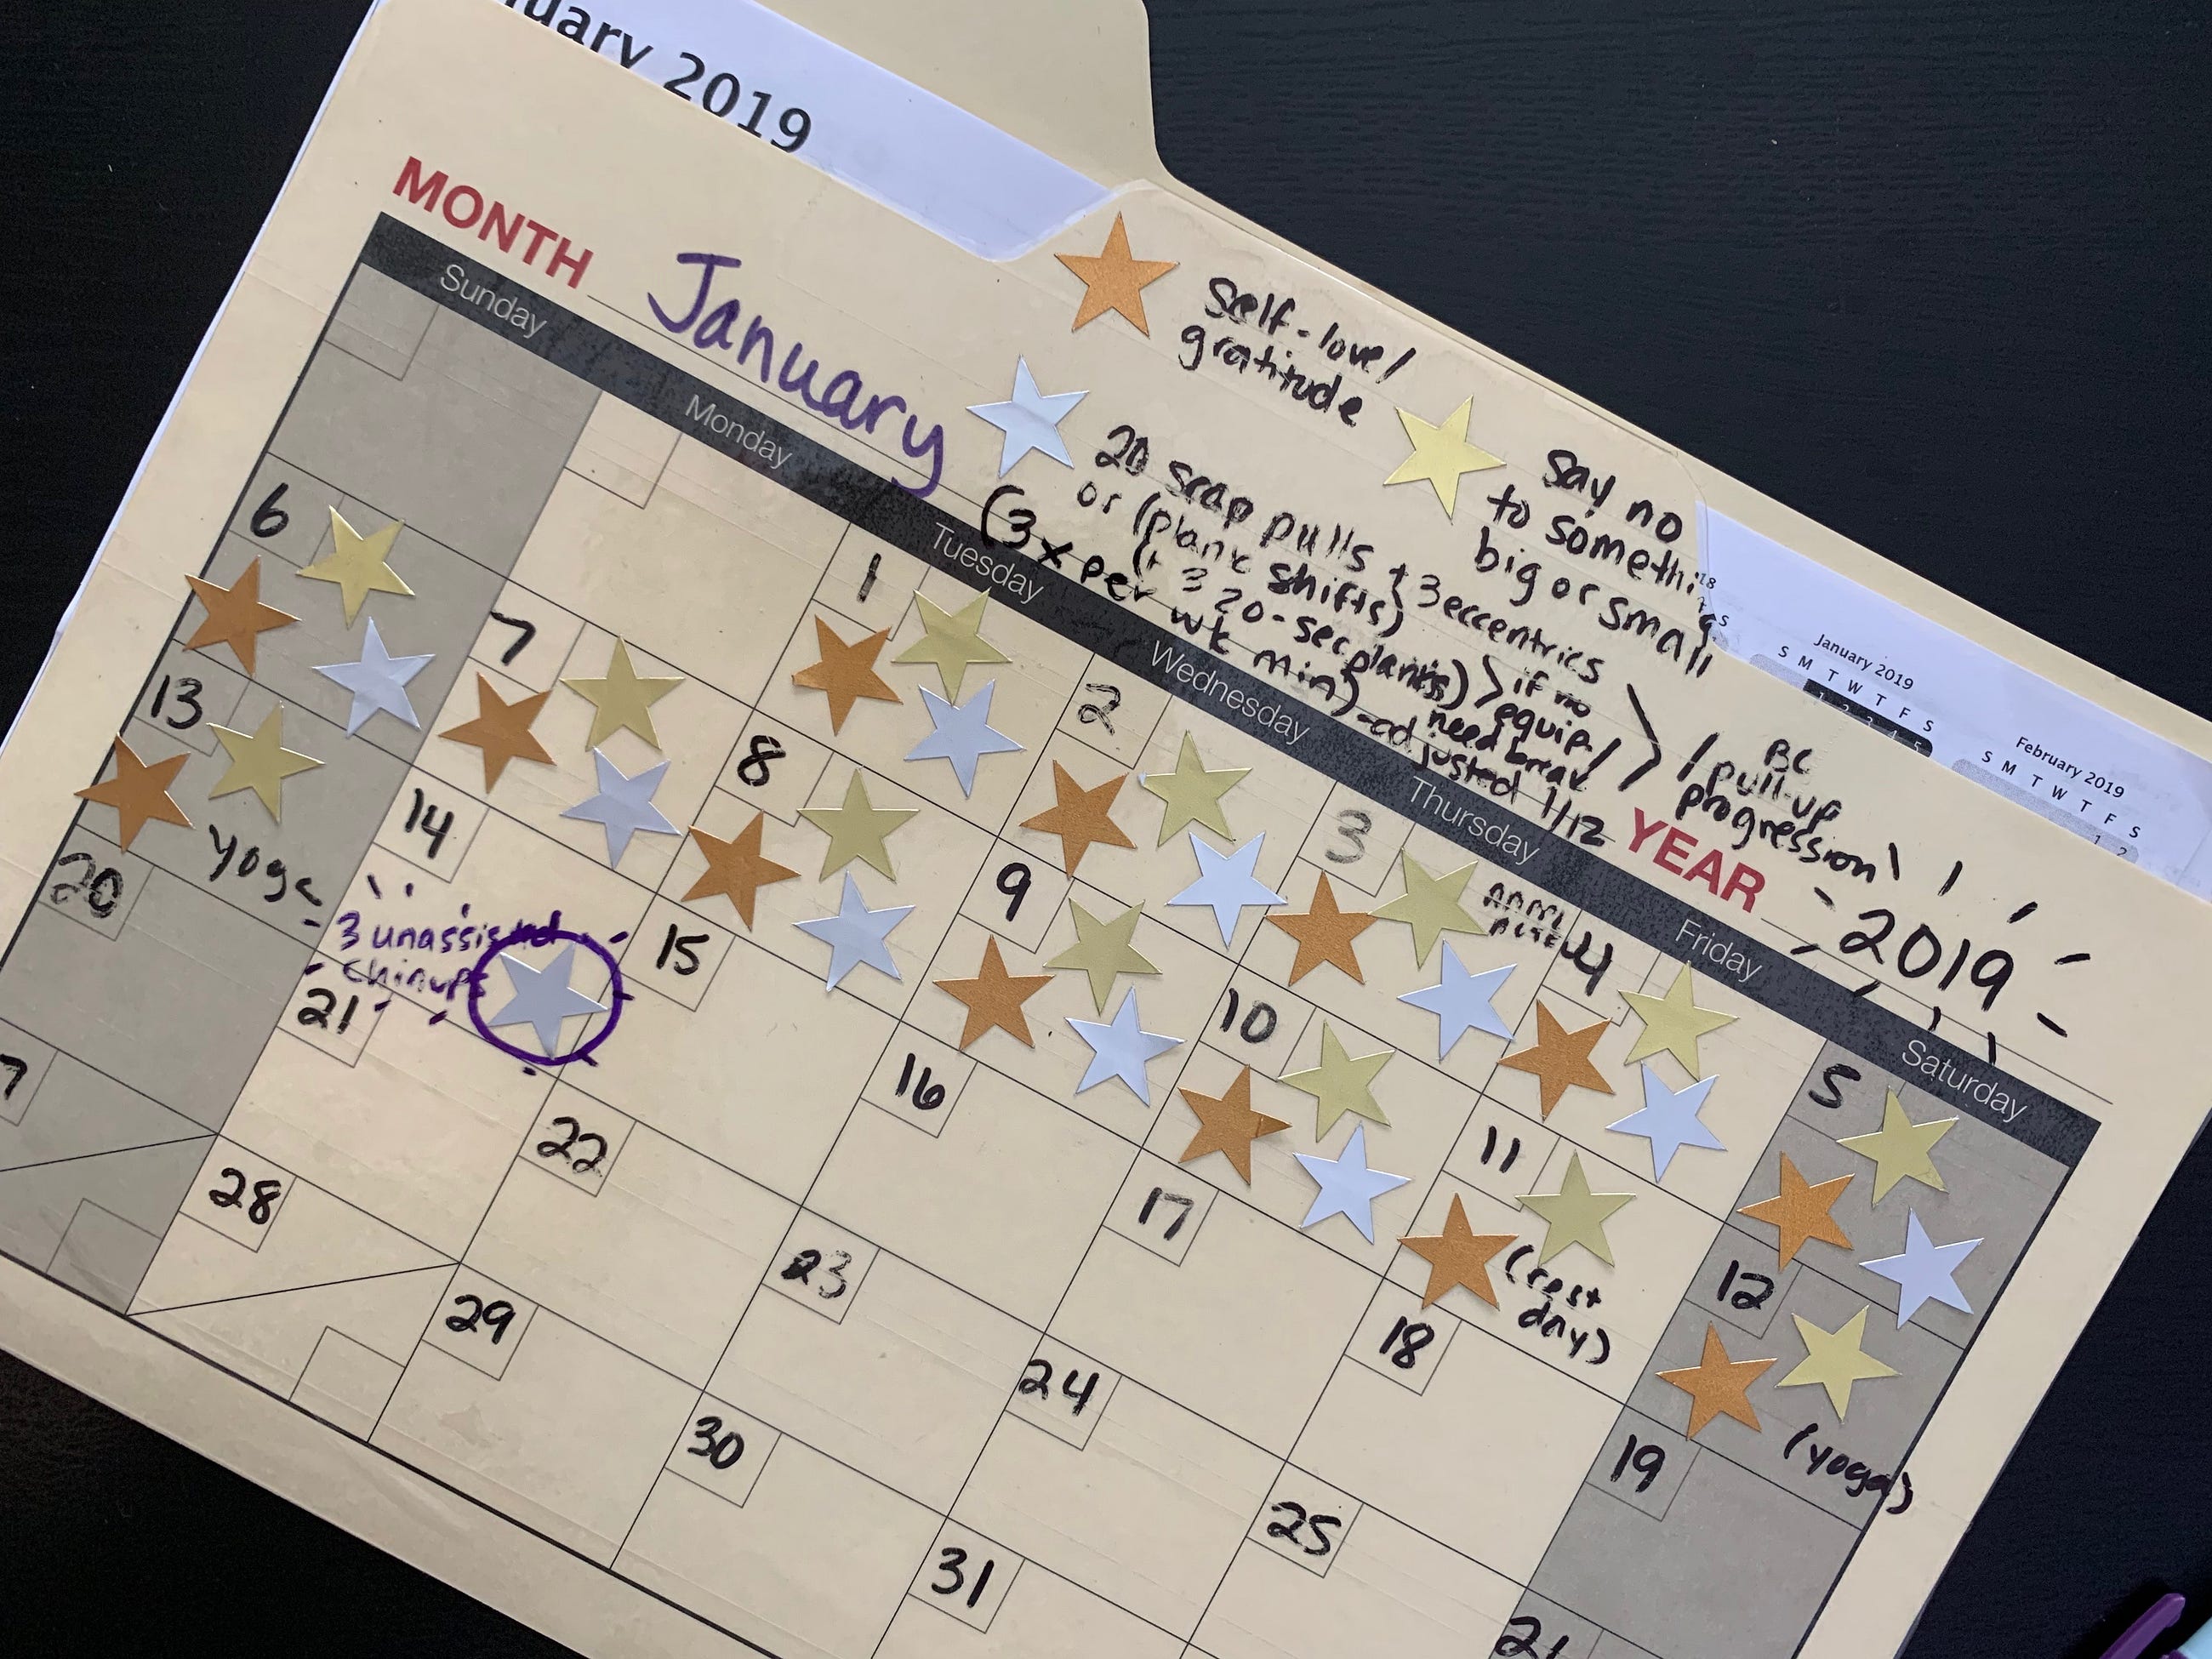 uary 2019
MONTH January
Self-love/
gratitude
Say no
to somethi
big or small
20 scap pulls + 3 eccentrics
or (plank shifts)
(+ 3 20-sec planks) > if no
equip/
need break
(3x per wk min) - adjusted 1/12
1 BC
pull-up
progression
YEAR 2019
January 2019
S M T W T F S
February 2019
S M T W T F S
1 2
Sunday Monday Tuesday Wednesday Thursday Friday Saturday
1 2 3 4 5
6 7 8 9 10 11 12
(rest
day)
(yoga)
13 14 15 16 17 18 19
yoga
3 unassisted
chinups
20 21 22 23 24 25
7 28 29 30 31